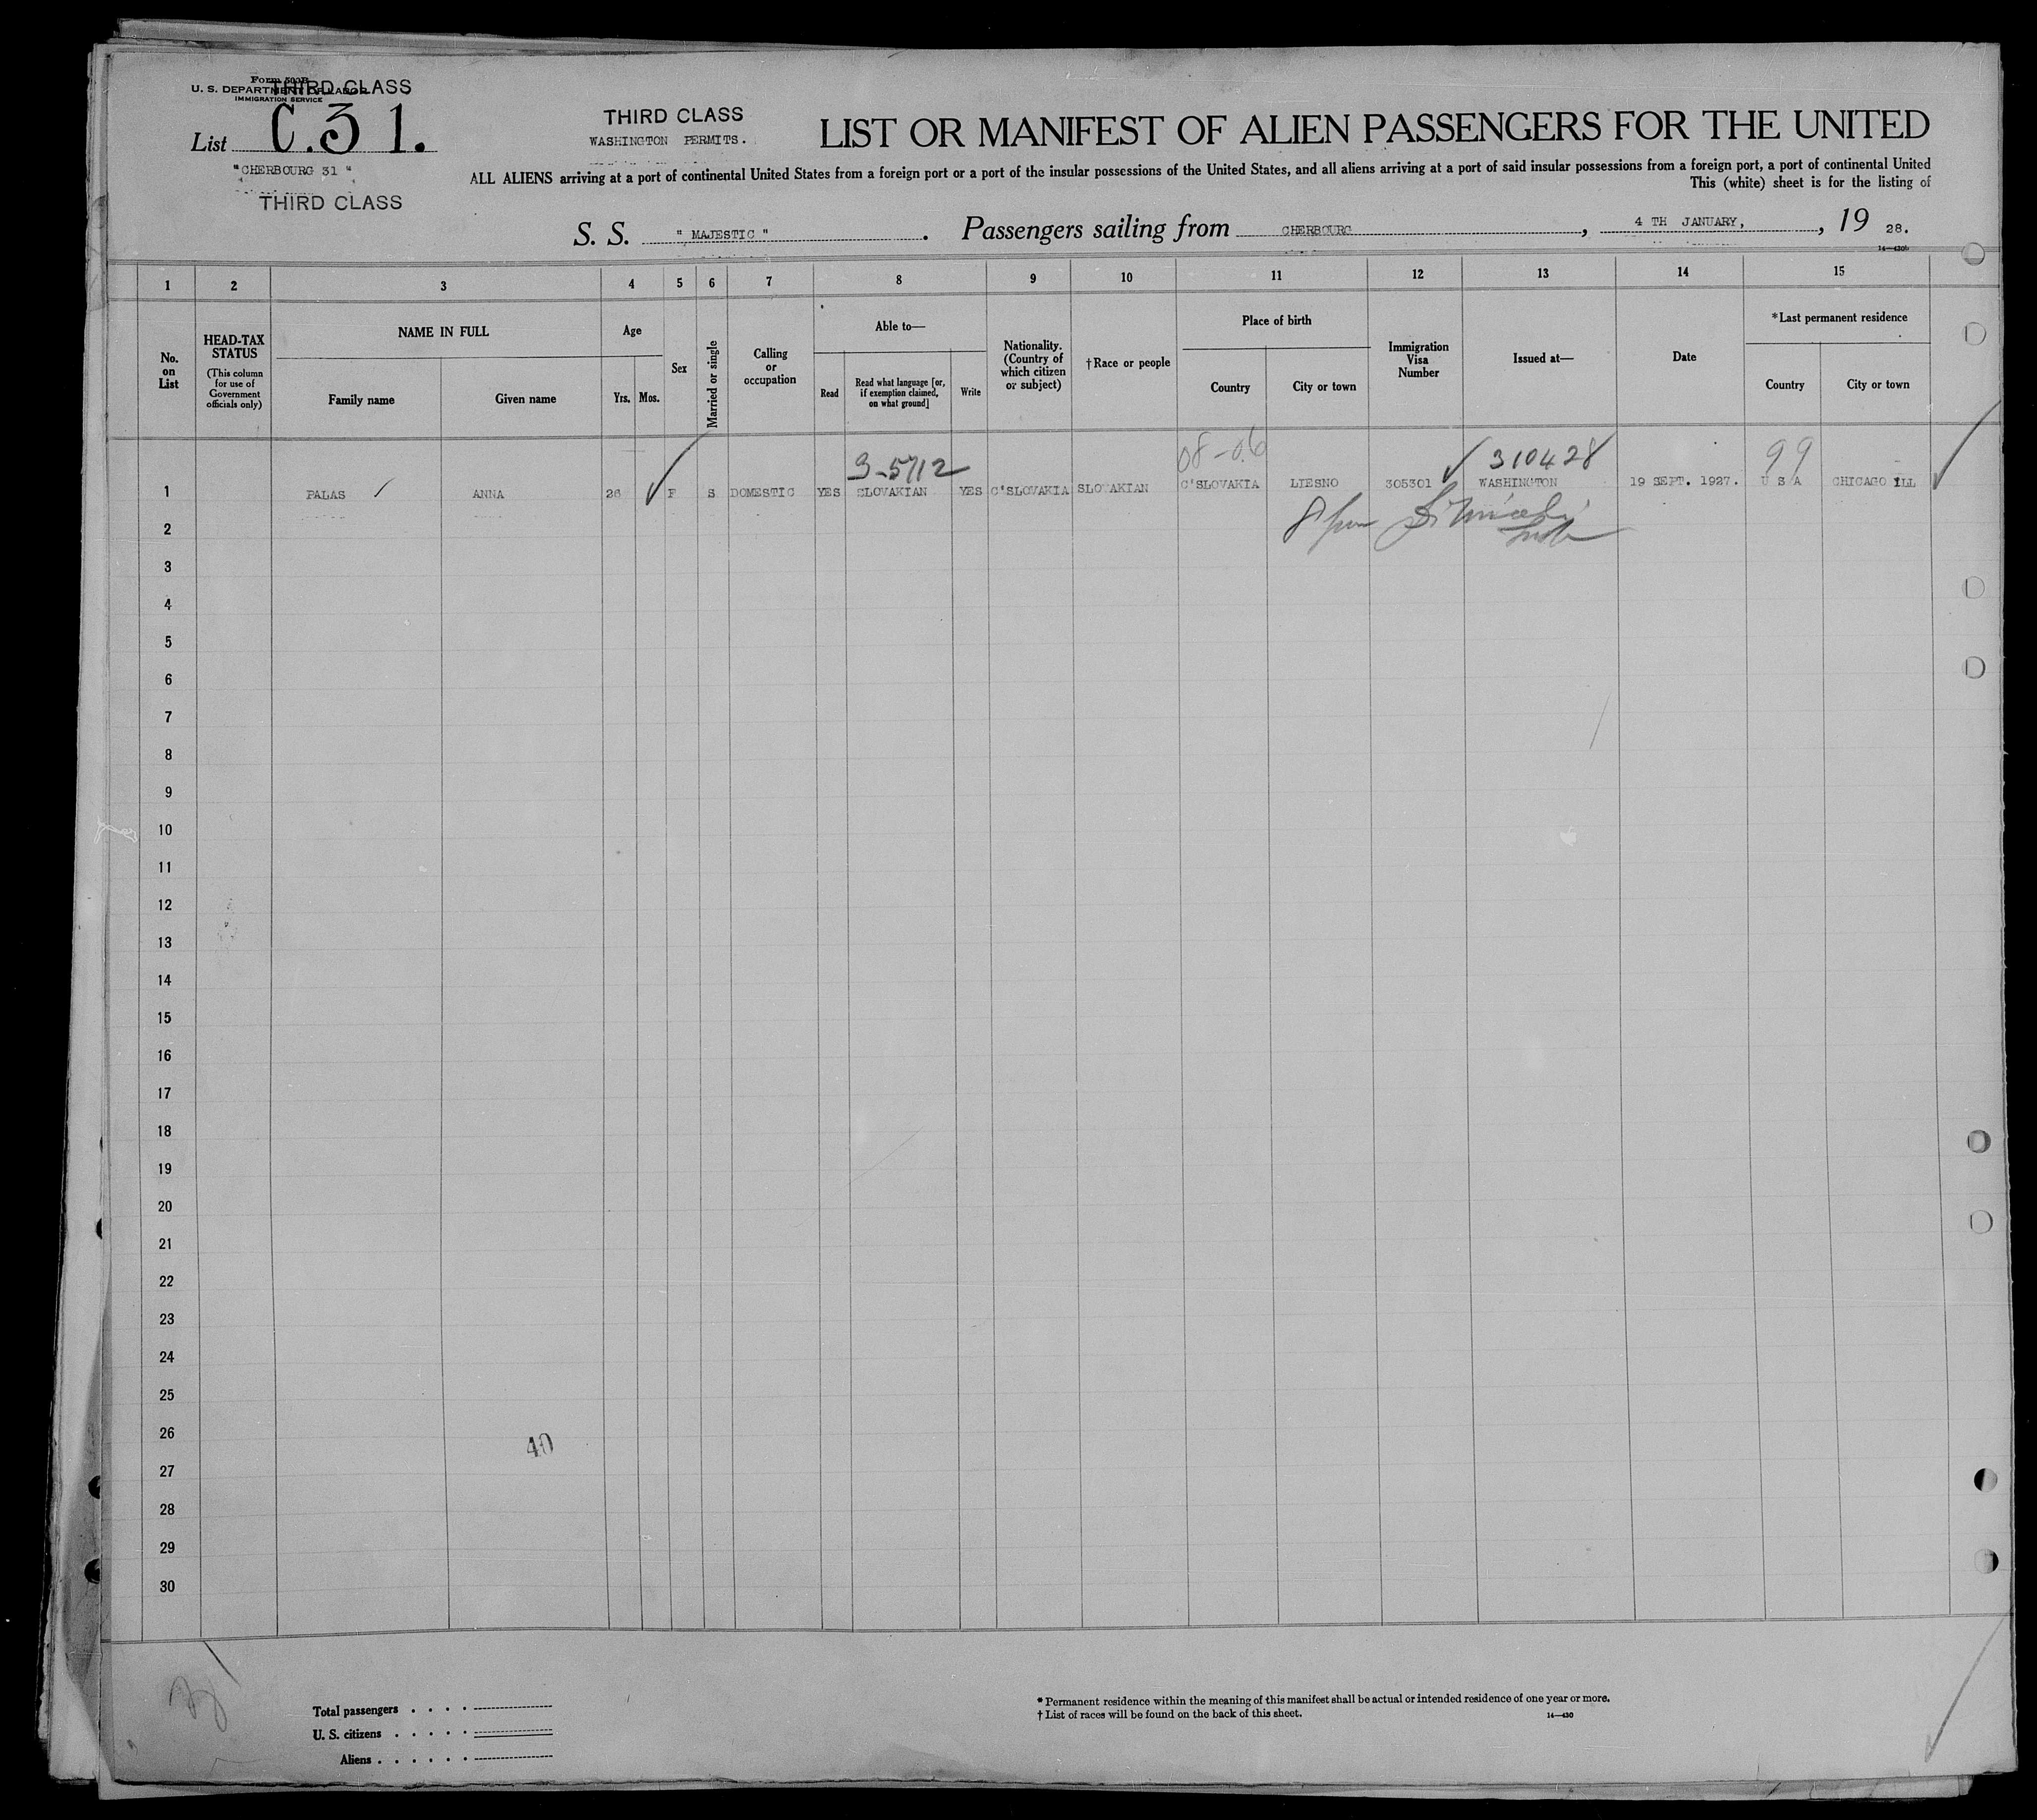 Form 500B
U. S. DEPARTMENT OF LABOR
IMMIGRATION SERVICE
THIRD CLASS
List C.31.
"CHERBOURG 31"
THIRD CLASS
THIRD CLASS
WASHINGTON PERMITS.
LIST OR MANIFEST OF ALIEN PASSENGERS FOR THE UNITED
ALL ALIENS arriving at a port of continental United States from a foreign port or a port of the insular possessions of the United States, and all aliens arriving at a port of said insular possessions from a foreign port, a port of continental United
This (white) sheet is for the listing of
S. S. " MAJESTIC " . Passengers sailing from CHERBOURG , 4 TH JANUARY, , 19 28.
14—430b
1 2 3 4 5 6 7 8 9 10 11 12 13 14 15
No. on List
HEAD-TAX STATUS
(This column for use of Government officials only)
NAME IN FULL
Family name
Given name
Age
Yrs. Mos.
Sex
Married or single
Calling or occupation
Able to—
Read
Read what language [or, if exemption claimed, on what ground]
Write
Nationality. (Country of which citizen or subject)
†Race or people
Place of birth
Country
City or town
Immigration Visa Number
Issued at—
Date
*Last permanent residence
Country
City or town
3-5712 08-06 310428 99
1 PALAS ANNA 26 F S DOMESTIC YES SLOVAKIAN YES C'SLOVAKIA SLOVAKIAN C'SLOVAKIA LIESNO 305301 WASHINGTON 19 SEPT. 1927. U S A CHICAGO ILL
2
3
4
5
6
7
8
9
10
11
12
13
14
15
16
17
18
19
20
21
22
23
24
25
26
40
27
28
29
30
Total passengers . . . .
U. S. citizens . . . . .
Aliens . . . . . .
* Permanent residence within the meaning of this manifest shall be actual or intended residence of one year or more.
† List of races will be found on the back of this sheet.
14—430